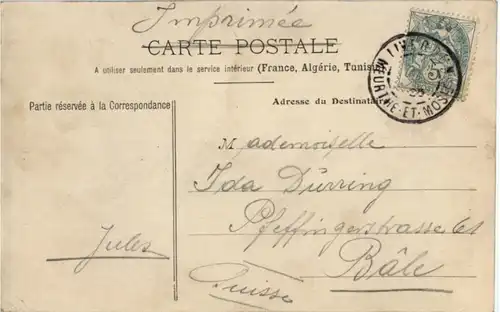 Imprimée
CARTE POSTALE
A utiliser seulement dans le service intérieur (France, Algérie, Tunisi
Partie réservée à la Correspondance
Adresse du Destinatai
MEURTHE-ET-MOS
Mademoiselle
Ida Dürring
Pfeffingerstrasse 61
Jules
Bâle
Suisse